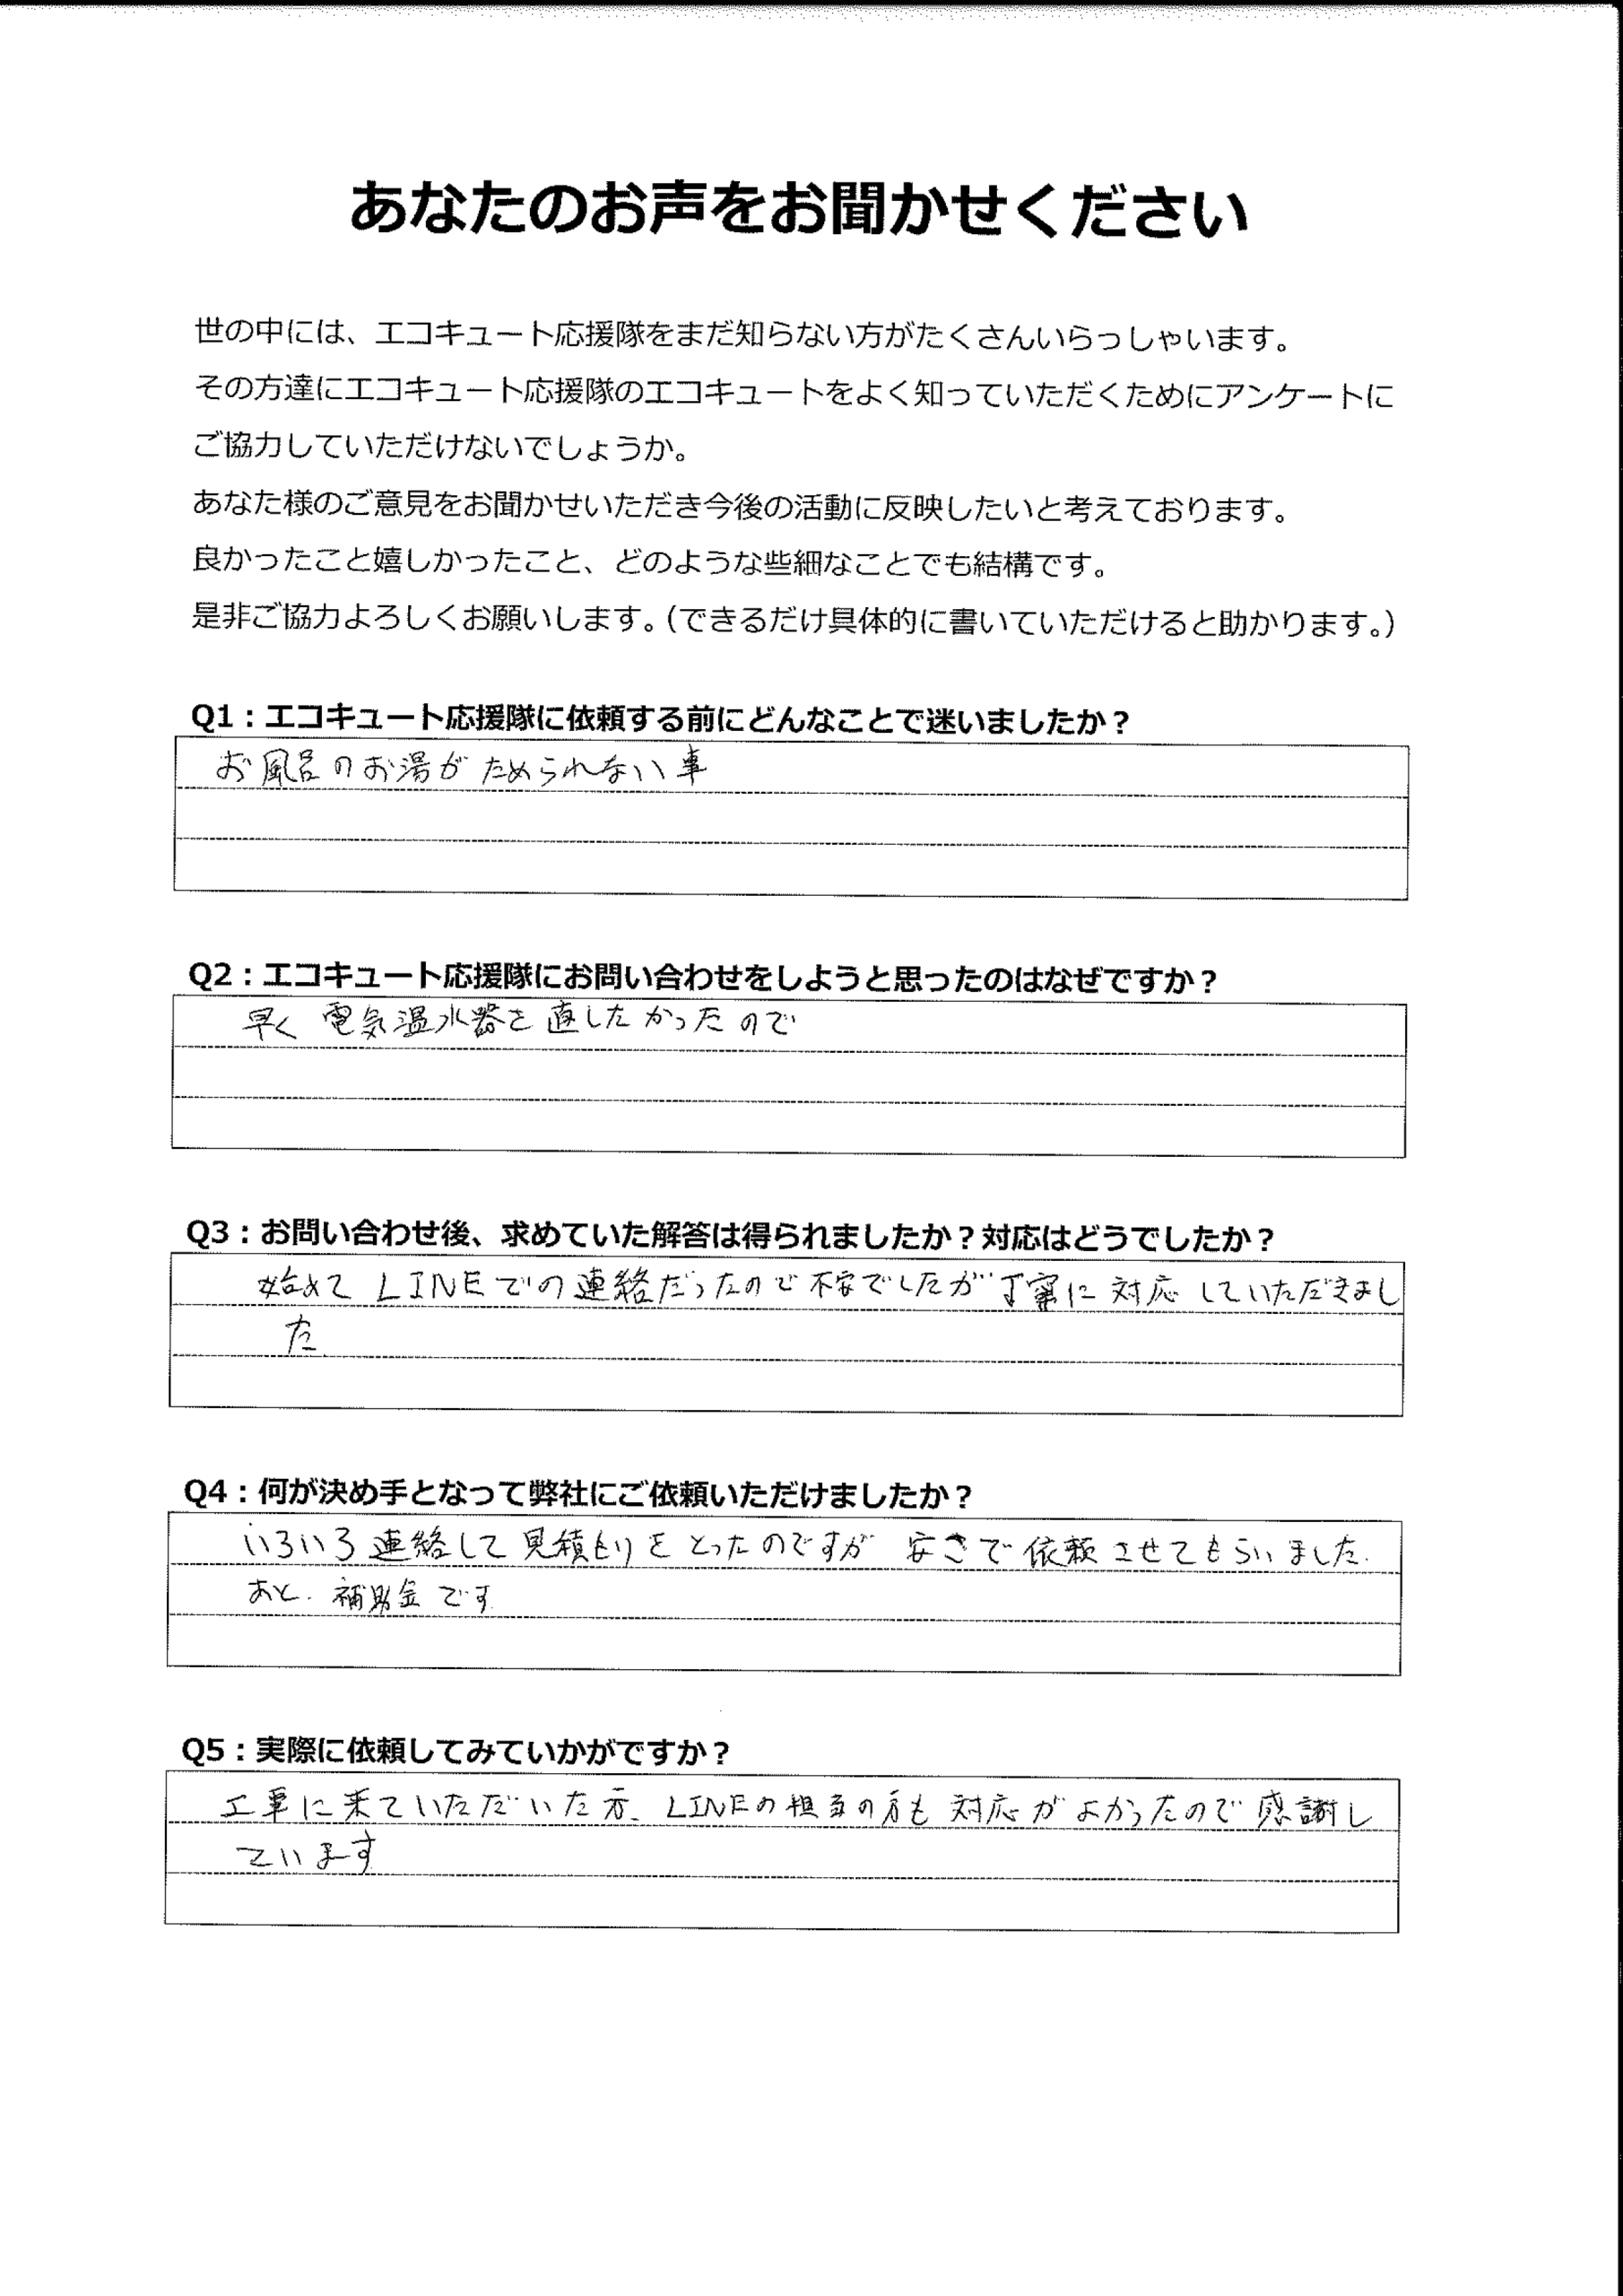 あなたのお声をお聞かせください
世の中には、エコキュート応援隊をまだ知らない方がたくさんいらっしゃいます。
その方達にエコキュート応援隊のエコキュートをよく知っていただくためにアンケートに
ご協力していただけないでしょうか。
あなた様のご意見をお聞かせいただき今後の活動に反映したいと考えております。
良かったこと嬉しかったこと、どのような些細なことでも結構です。
是非ご協力よろしくお願いします。（できるだけ具体的に書いていただけると助かります。）
Q1：エコキュート応援隊に依頼する前にどんなことで迷いましたか？
お風呂のお湯がためられない事
Q2：エコキュート応援隊にお問い合わせをしようと思ったのはなぜですか？
早く電気温水器を直したかったので
Q3：お問い合わせ後、求めていた解答は得られましたか？対応はどうでしたか？
始めて LINEでの連絡だったので不安でしたが丁寧に対応していただきまし
た
Q4：何が決め手となって弊社にご依頼いただけましたか？
いろいろ連絡して見積もりをとったのですが 安さで依頼させてもらいました.
あと. 補助金です
Q5：実際に依頼してみていかがですか？
工事に来ていただいた方、LINEの担当の方も対応がよかったので感謝し
ています